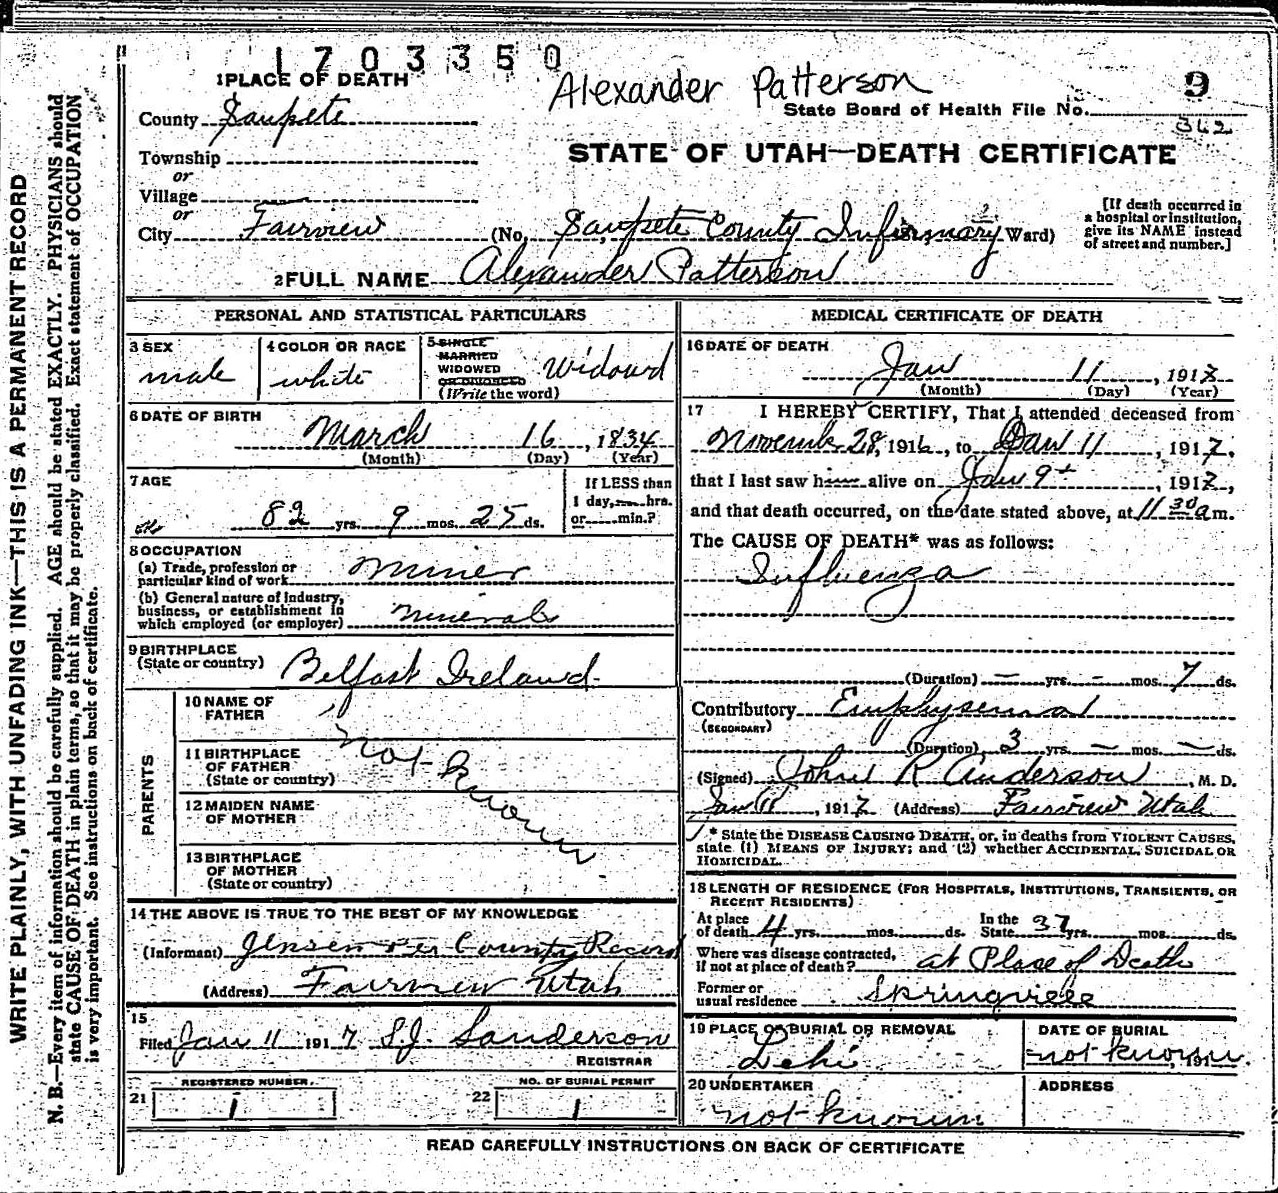 1703350
Alexander Patterson
9
1 PLACE OF DEATH
State Board of Health File No.
362
County Sanpete
STATE OF UTAH—DEATH CERTIFICATE
Township
or
Village
or
City Fairview (No. Sanpete County Infirmary Ward)
[If death occurred in
a hospital or institution,
give its NAME instead
of street and number.]
2 FULL NAME Alexander Patterson
PERSONAL AND STATISTICAL PARTICULARS
3 SEX
male
4 COLOR OR RACE
white
5 SINGLE
MARRIED
WIDOWED
OR DIVORCED
(Write the word)
Widowd
6 DATE OF BIRTH
March 16, 1834
(Month) (Day) (Year)
7 AGE
82 yrs. 9 mos. 25 ds.
If LESS than
1 day, hrs.
or min.?
8 OCCUPATION
(a) Trade, profession or
particular kind of work Miner
(b) General nature of industry,
business, or establishment in
which employed (or employer) minerals
9 BIRTHPLACE
(State or country) Belfast Ireland
PARENTS
10 NAME OF
FATHER
11 BIRTHPLACE
OF FATHER
(State or country)
12 MAIDEN NAME
OF MOTHER
13 BIRTHPLACE
OF MOTHER
(State or country)
not known
14 THE ABOVE IS TRUE TO THE BEST OF MY KNOWLEDGE
(Informant) Jensen per County Record
(Address) Fairview Utah
15
Filed Jan 11 1917 S.J. Sanderson
REGISTRAR
REGISTERED NUMBER.
21 1
NO. OF BURIAL PERMIT
22 1
MEDICAL CERTIFICATE OF DEATH
16 DATE OF DEATH
Jan 11, 1917
(Month) (Day) (Year)
17 I HEREBY CERTIFY, That I attended deceased from
Novemb 28, 1916, to Jan 11, 1917,
that I last saw him alive on Jan 9th, 1917,
and that death occurred, on the date stated above, at 11 30 a m.
The CAUSE OF DEATH* was as follows:
Influenza
(Duration) — yrs. — mos. 7 ds.
Contributory Emphysema
(SECONDARY)
(Duration) 3 yrs. — mos. — ds.
(Signed) John R Anderson, M. D.
Jan 11, 1917 (Address) Fairview Utah
* State the DISEASE CAUSING DEATH, or, in deaths from VIOLENT CAUSES,
state (1) MEANS OF INJURY; and (2) whether ACCIDENTAL, SUICIDAL OR
HOMICIDAL.
18 LENGTH OF RESIDENCE (FOR HOSPITALS, INSTITUTIONS, TRANSIENTS, OR
RECENT RESIDENTS)
At place
of death 4 yrs. mos. ds. In the
State 37 yrs. mos. ds.
Where was disease contracted,
if not at place of death? at Place of Death
Former or
usual residence Springville
19 PLACE OF BURIAL OR REMOVAL
Lehi
DATE OF BURIAL
not known, 191
20 UNDERTAKER
not known
ADDRESS
READ CAREFULLY INSTRUCTIONS ON BACK OF CERTIFICATE
WRITE PLAINLY, WITH UNFADING INK—THIS IS A PERMANENT RECORD
N. B.—Every item of information should be carefully supplied. AGE should be stated EXACTLY. PHYSICIANS should
state CAUSE OF DEATH in plain terms, so that it may be properly classified. Exact statement of OCCUPATION
is very important. See instructions on back of certificate.